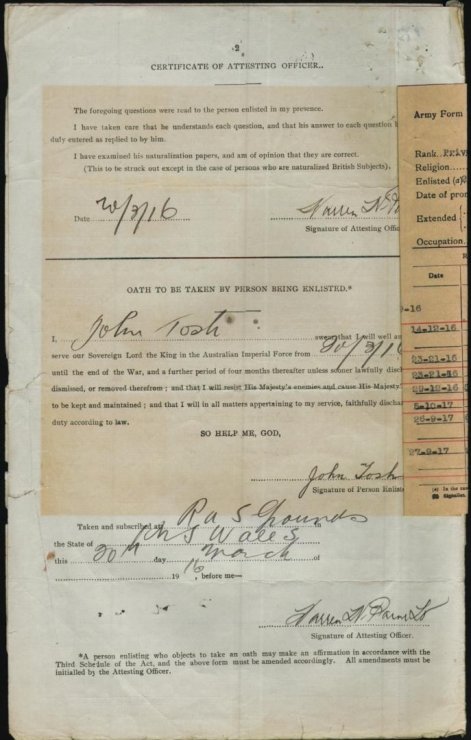 2
CERTIFICATE OF ATTESTING OFFICER.
The foregoing questions were read to the person enlisted in my presence.
I have taken care that he understands each question, and that his answer to each question
duly entered as replied to by him.
I have examined his naturalization papers, and am of opinion that they are correct.
(This to be struck out except in the case of persons who are naturalized British Subjects).
Date 20/3/16
Warren
Signature of Attesting Offic
OATH TO BE TAKEN BY PERSON BEING ENLISTED.*
I, John Tosh swear that I will well an
serve our Sovereign Lord the King in the Australian Imperial Force from 20/3/16
until the end of the War, and a further period of four months thereafter unless sooner lawfully disch
dismissed, or removed therefrom ; and that I will resist His Majesty's enemies and cause His Majesty'
to be kept and maintained ; and that I will in all matters appertaining to my service, faithfully dischar
duty according to law.
SO HELP ME, GOD,
John Tosh
Signature of Person Enliste
Taken and subscribed at R A S Grounds in
the State of N S Wales
this 20th day March of
19 16, before me—
Warren
Signature of Attesting Officer.
*A person enlisting who objects to take an oath may make an affirmation in accordance with the
Third Schedule of the Act, and the above form must be amended accordingly. All amendments must be
initialled by the Attesting Officer.
Army Form
Rank
Religion
Enlisted (a)
Date of pro
Extended
Occupation
Date
-16
14-12-16
23-21-16
23-21-16
29-12-16
5-10-17
25-9-17
27-9-17